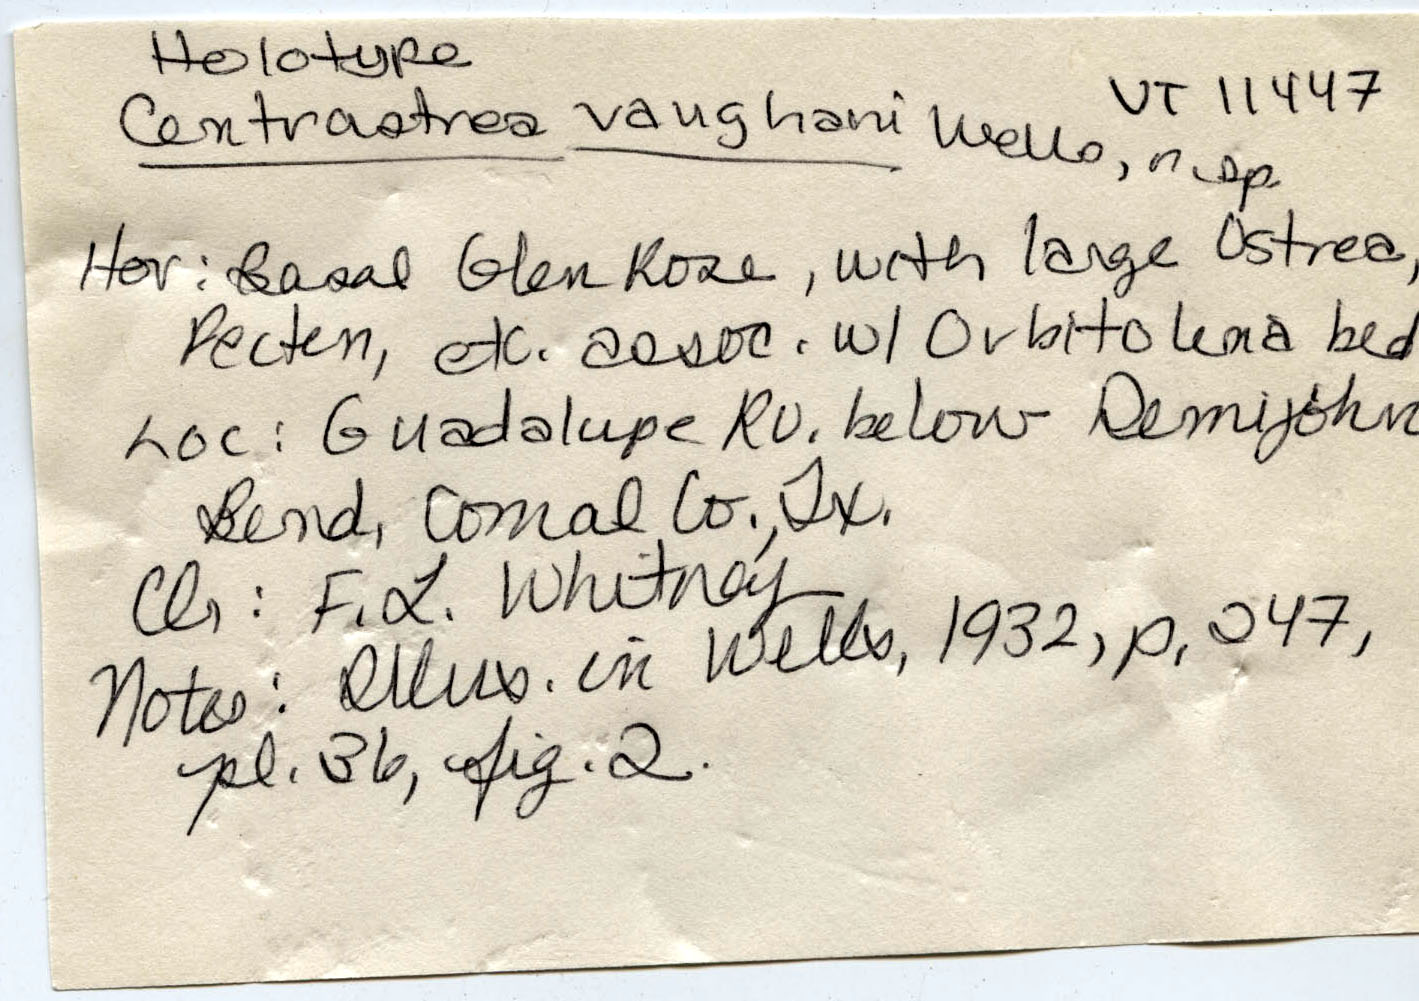 Holotype
UT 11447
Centrastrea vaughani Wells, n. sp.
Hor: Basal Glen Rose, with large Ostrea,
Pecten, etc. assoc. w/ Orbitolina bed
Loc: Guadalupe Rv. below Demijohn
Bend, Comal Co., Tx.
Clr: F. L. Whitney
Notes: Illus. in Wells, 1932, p. 247,
pl. 36, fig. 2.